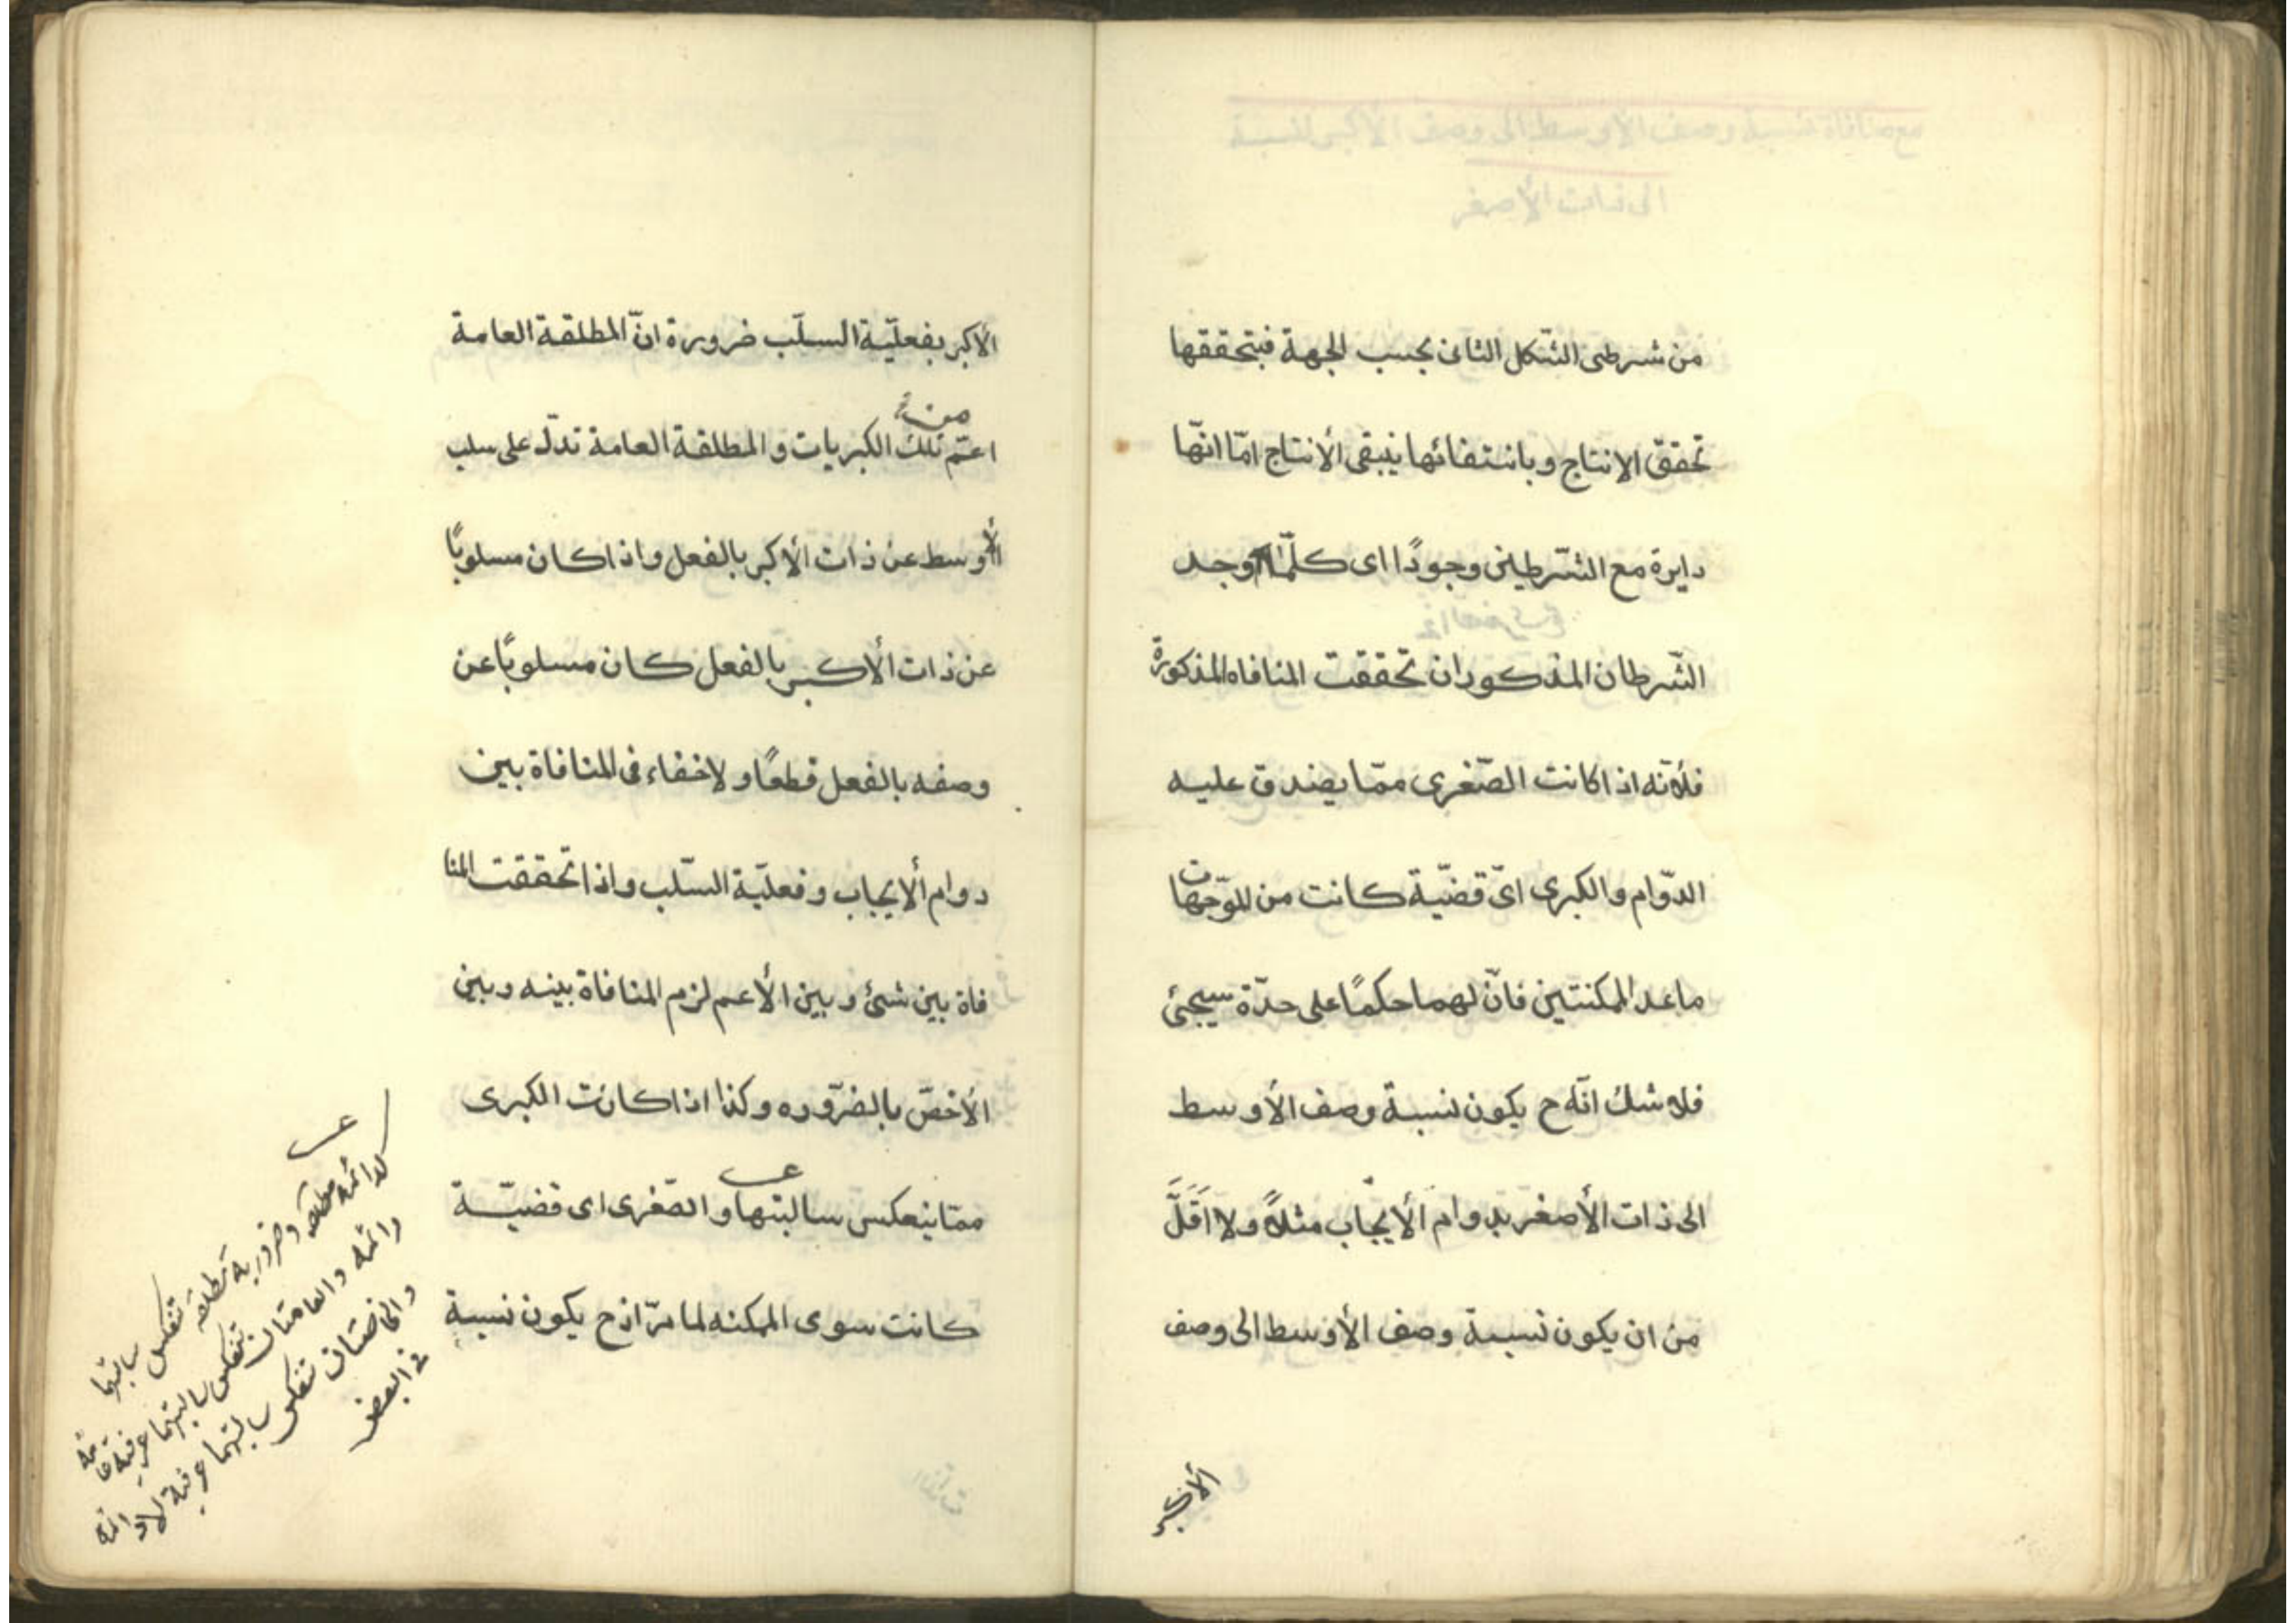 من شرطى الشّكل الثانى بحسب الجهة فبتحققها
تحقق الانتاج وبانتفائها ينبقى الأنتاج امّا انّها
دايرة مع الشّرطين وجودًا اى كلّما وجد
الشّرطان المذكوران تحققت المنافاه المذكورة
فلأنّه اذا كانت الصّغرى ممّا يصدق عليه
الدّوام والكبرى اىّ قضيّة كانت من الموّجهات
ماعدا الممكنتين فانّ لهما حكمًا على حدّة سيجئ
فلا شك انّه ح يكون نسبة وصف الأوسط
الى ذات الأصغر بدوام الأيجاب مثلاً ولا اَقَلَّ
من ان يكون نسبة وصف الأوسط الى وصف
الأكبر
الأكبر بفعليّة السلّب ضرورة انّ المطلقة العامة
من
اعمّ تلك الكبريات و المطلقة العامة تدلّ على سلب
الأوسط عن ذات الأكبر بالفعل واذا كان مسلوبًا
عن ذات الأكبر بالفعل كان مسلوبًا عن
وصفه بالفعل قطعًا و لاخفاء فى المنافاة بين
دوام الأيجاب و فعليّة السّلب واذا تحققت المنا
فاة بين شئ و بين الأعم لزم المنافاة بينه و بين
الأخصّ بالضرّوره وكذا اذا كانت الكبرى
ممّا ينعكس سالبتها و الصّغرى اى قضيّة
كانت سوى الممكنه لما مرّ اذ ح يكون نسبة
لدائمه مطلقه و ضروريه مطلقه تنعكس سالبتها
دائمه والعامتان تنعكس سالبتهما عرفية عامه
والخاصتان تنعكس سالبتهما عرفية لادائمه
فى البعض